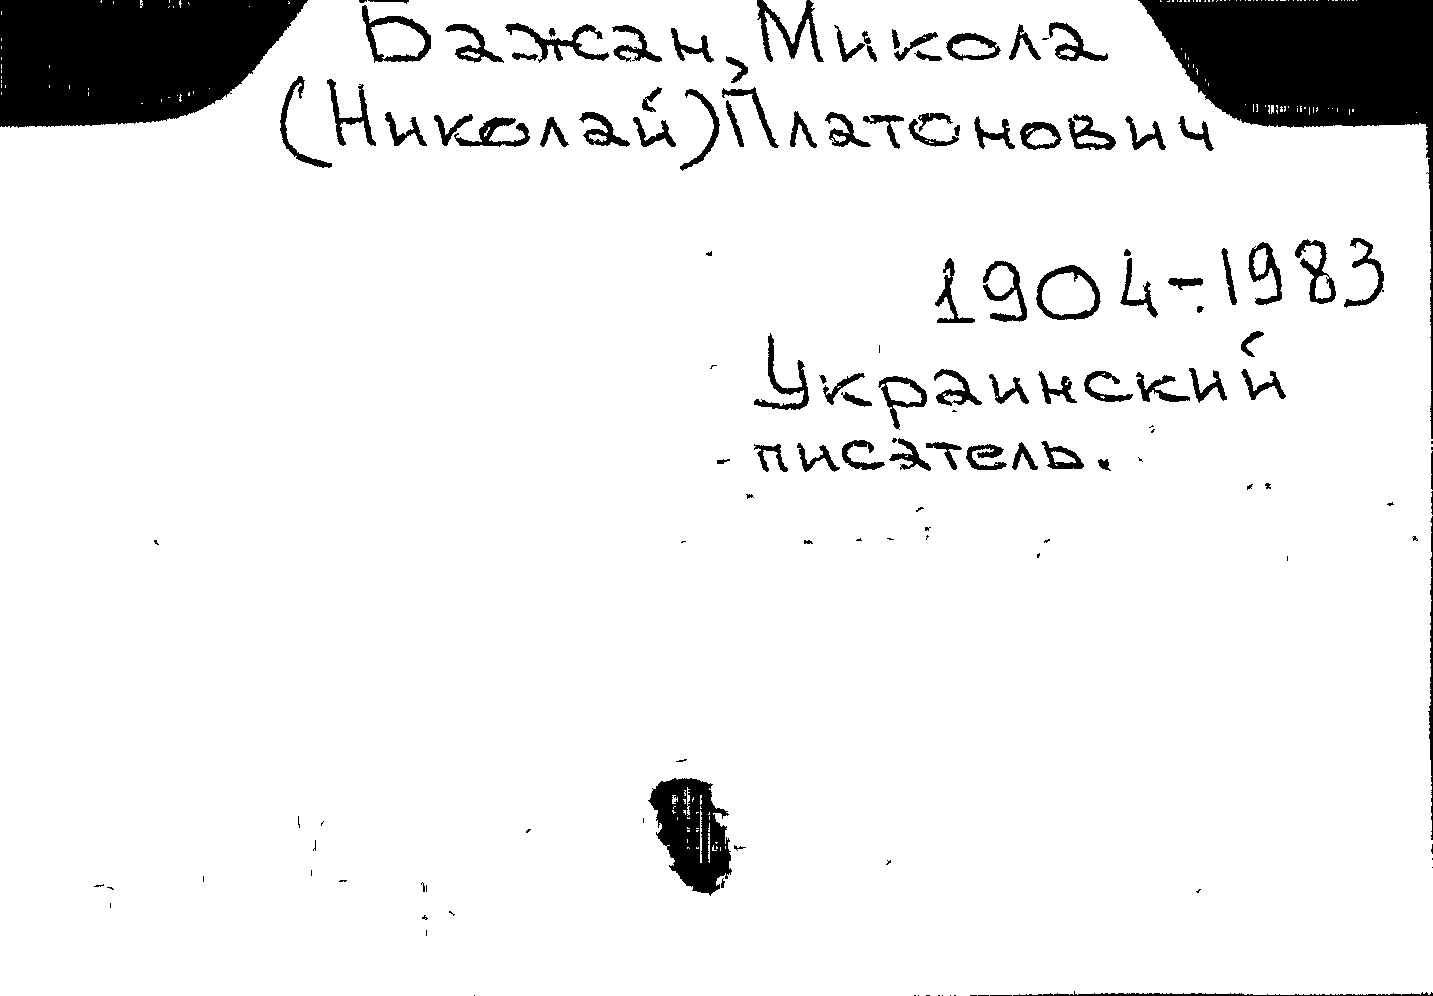 Бажан, Микола
(Николай) Платонович
1904-1983
Украинский
писатель.